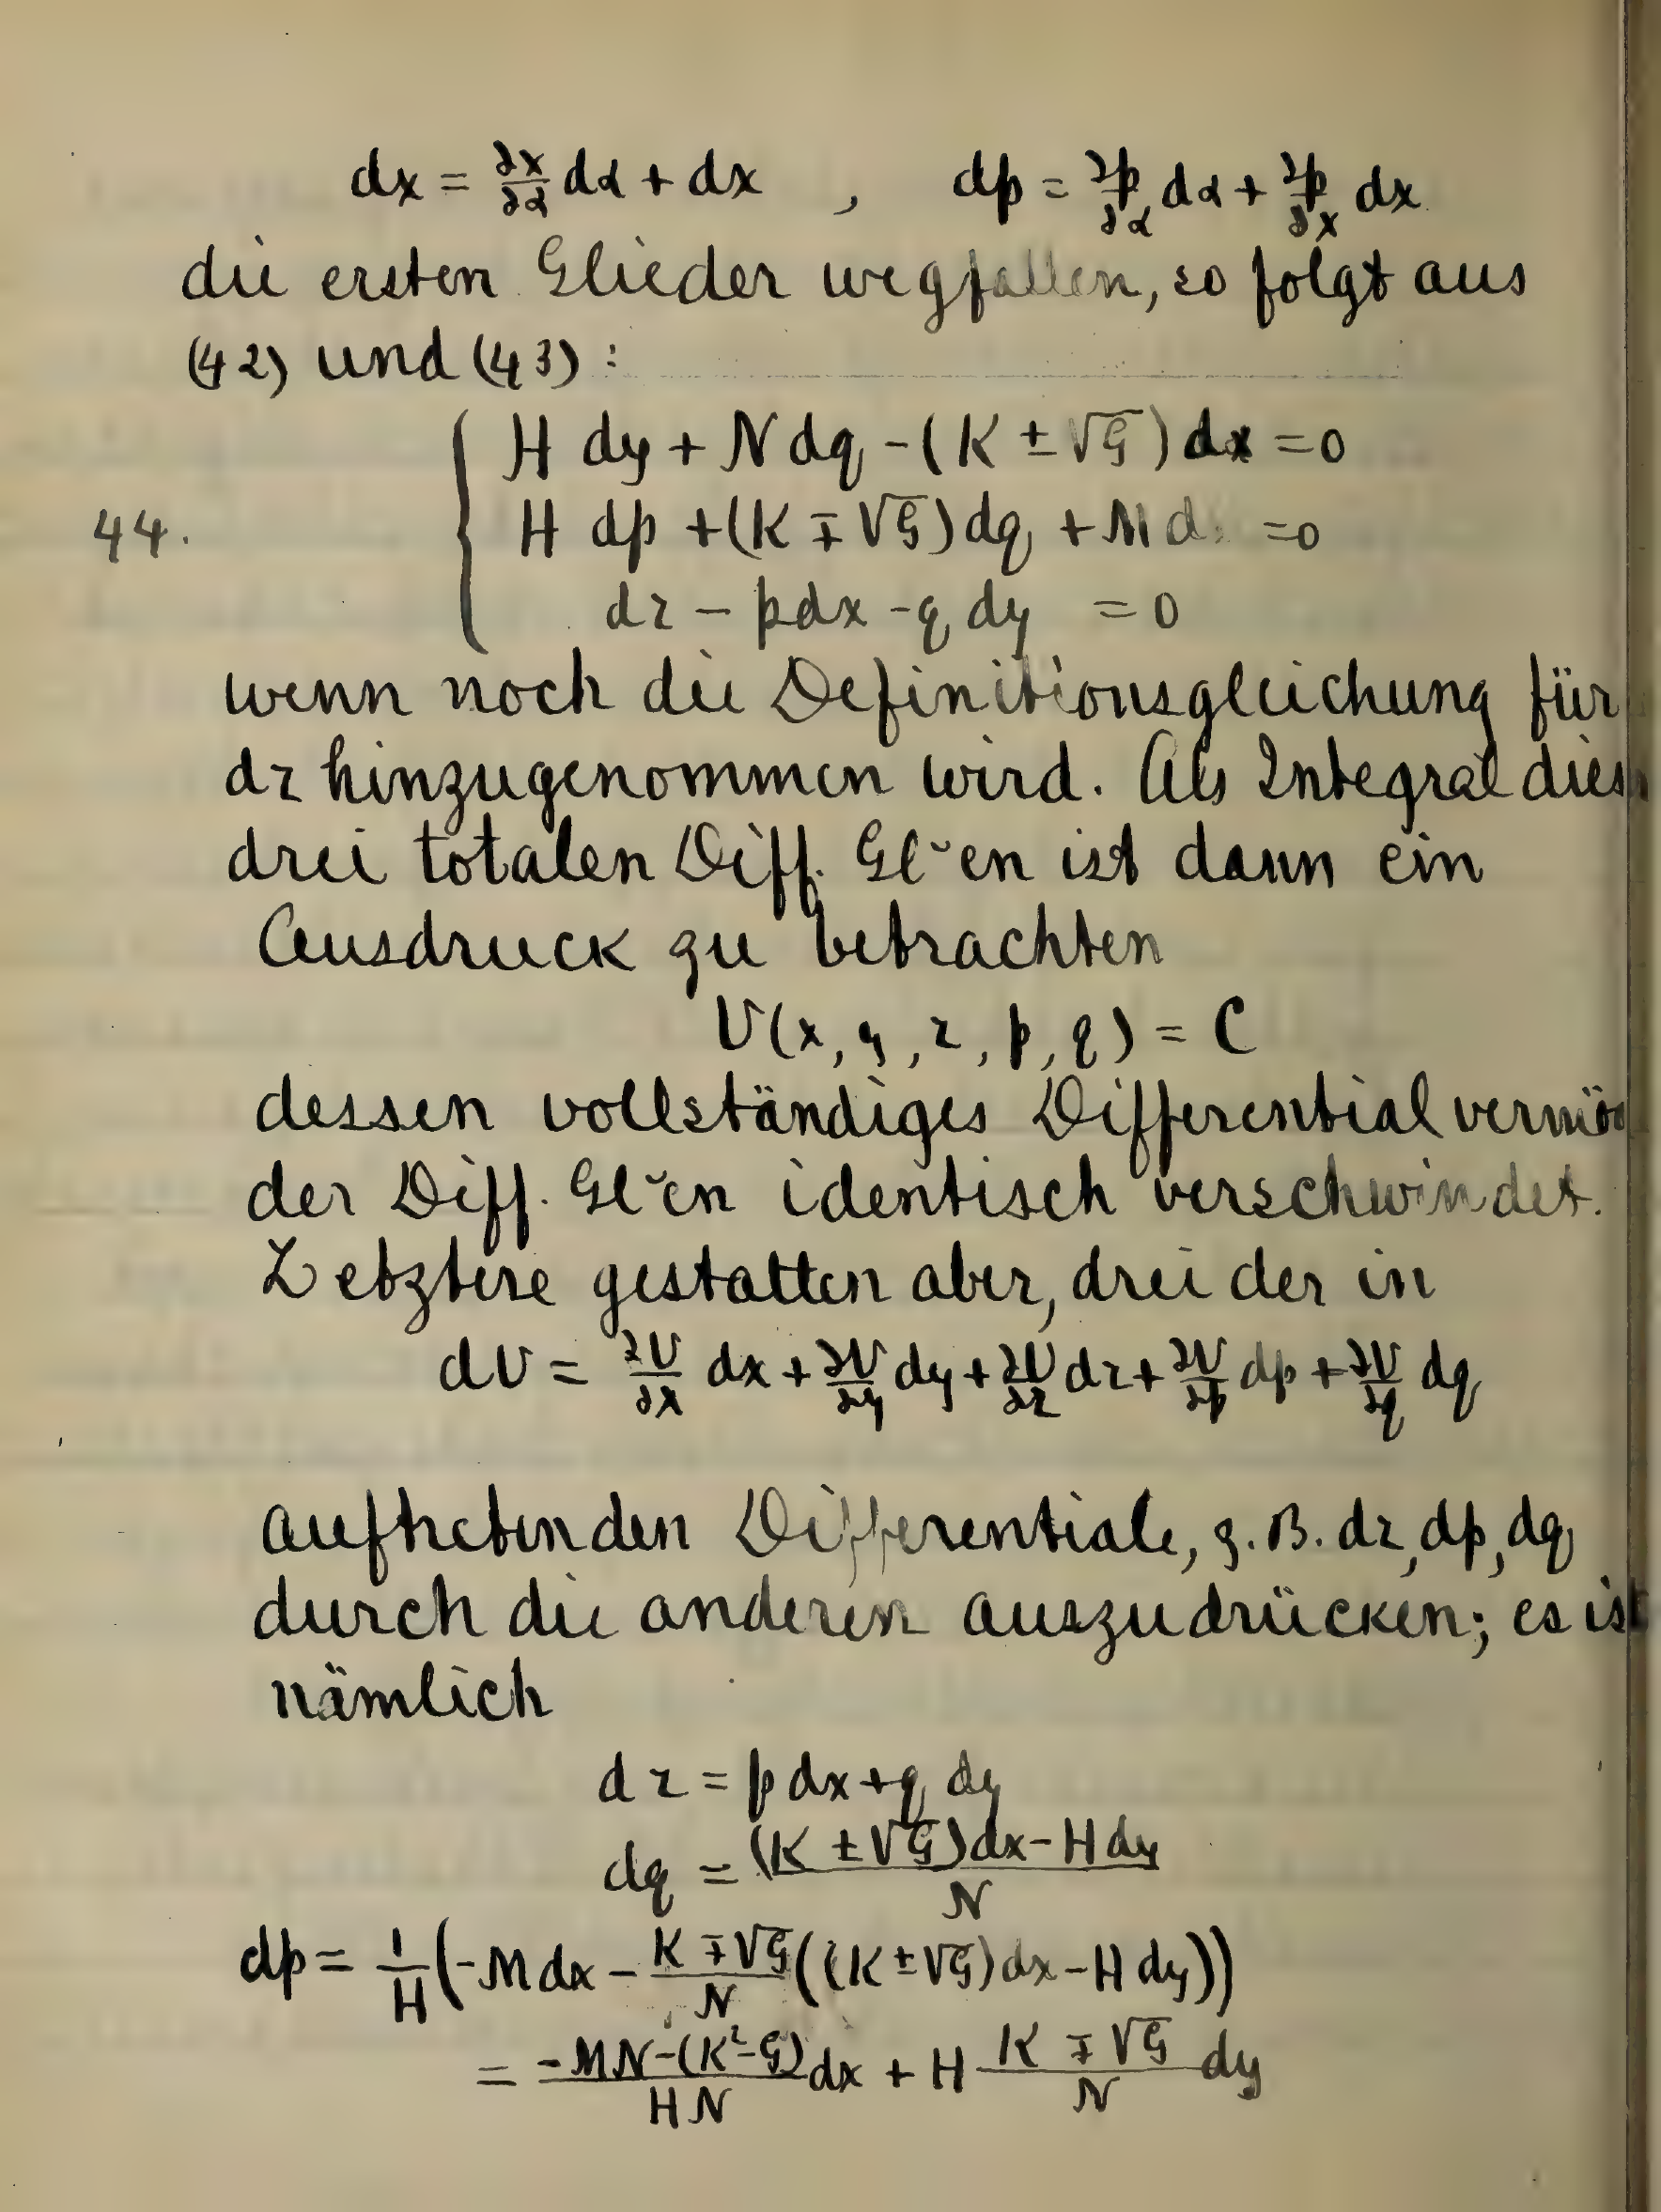 dx = ∂x/∂α dα + dx , dp = ∂p/∂α dα + ∂p/∂x dx
die ersten Glieder wegfallen, so folgt aus
(42) und (43) :
H dy + N dq - (K ± √G) dx = 0
44. H dp + (K ∓ √G) dq + M d =0
dz - pdx - q dy = 0
wenn noch die Definitionsgleichung für
dz hinzugenommen wird. Als Integral dies
drei totalen Diff. Gl˘en ist dann ein
Ausdruck zu betrachten
V(x, y, z, p, q) = C
dessen vollständiges Differential vermö
der Diff. Gl˘en identisch verschwindet.
Letztere gestatten aber, drei der in
dV = ∂V/∂x dx + ∂V/∂y dy + ∂V/∂z dz + ∂V/∂p dp + ∂V/∂q dq
auftretenden Differentiale, z. B. dz, dp, dq
durch die anderen auszudrücken; es ist
nämlich
dz = p dx + q dy
dq = ((K ± √G)dx - H dy)/N
dp = 1/H (-M dx - (K ∓ √G)/N ((K ± √G) dx - H dy))
= (-MN-(K²-G))/HN dx + H (K ∓ √G)/N dy